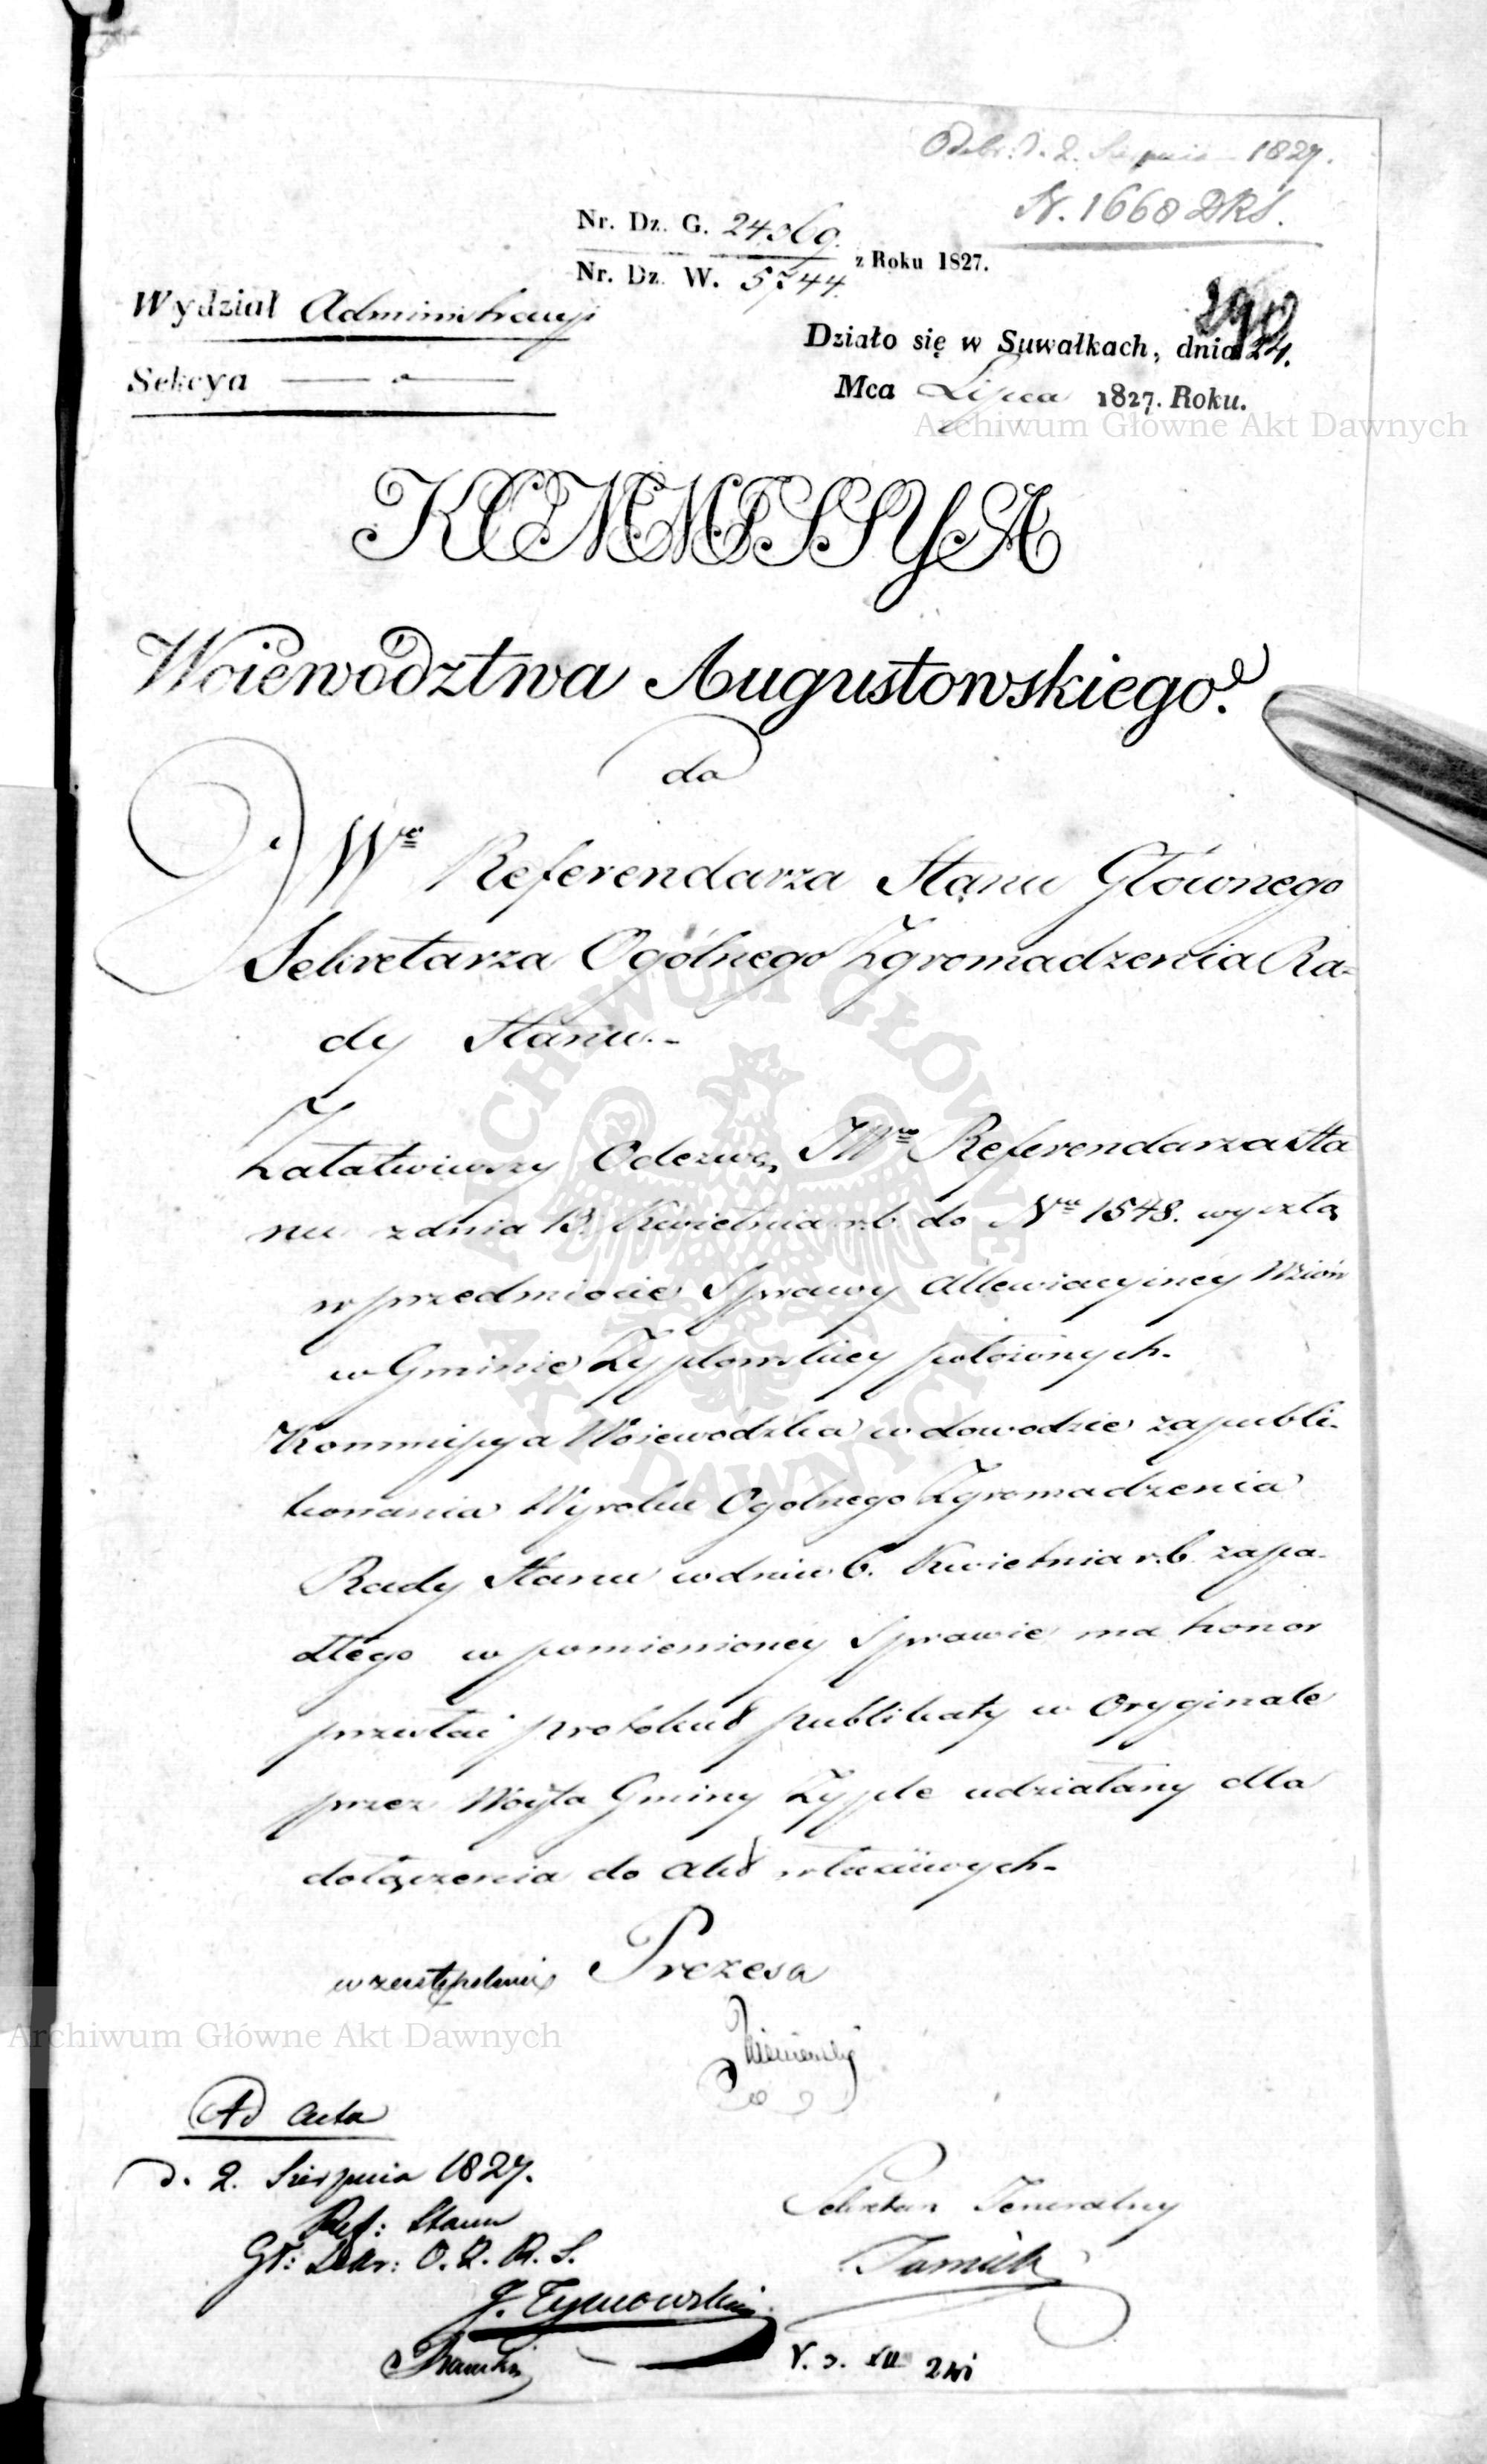 Odebr: d. 2. Sierpnia 1827.
N. 1668 DRS.
Nr. Dz. G. 24569.
Nr. Dz. W. 5744. z Roku 1827.
Wydział Administracyi
Sekcya
290
Działo się w Suwałkach, dnia 24.
Mca Lipca 1827. Roku.
Archiwum Główne Akt Dawnych
KOMMISSYA
Woiewództwa Augustowskiego.
do
JWo Referendarza Stanu Głównego
Sekretarza Ogólnego Zgromadzenia Ra=
dy Stanu.-
Załatwiwszy Odezwę JWo Referendarza Sta
nu z dnia 13. Kwietnia r.b. do Nru 1548. wyszłą
w przedmiocie Sprawy Allewiacyiney Wsiów
w Gminie Zyplowskiey położonych.
Kommissya Woiewódzka w dowodzie zapubli-
kowania Wyroku Ogolnego Zgromadzenia
Rady Stanu w dniu 6. Kwietnia r.b. zapa-
dłego w pomienioney Sprawie ma honor
przesłać protokuł publikaty w Oryginale
przez Woyta Gminy Zyple udziałany dla
dołączenia do Akt właściwych-
w zastępstwie Prezesa
Archiwum Główne Akt Dawnych
Ad acta
d. 2. Sierpnia 1827.
Ref: Stanu
Gł: Sekr: O. Z. R. S.
J. Tymowski
Sekretarz Jeneralny
ARCHIWUM GŁÓWNE AKT DAWNYCH